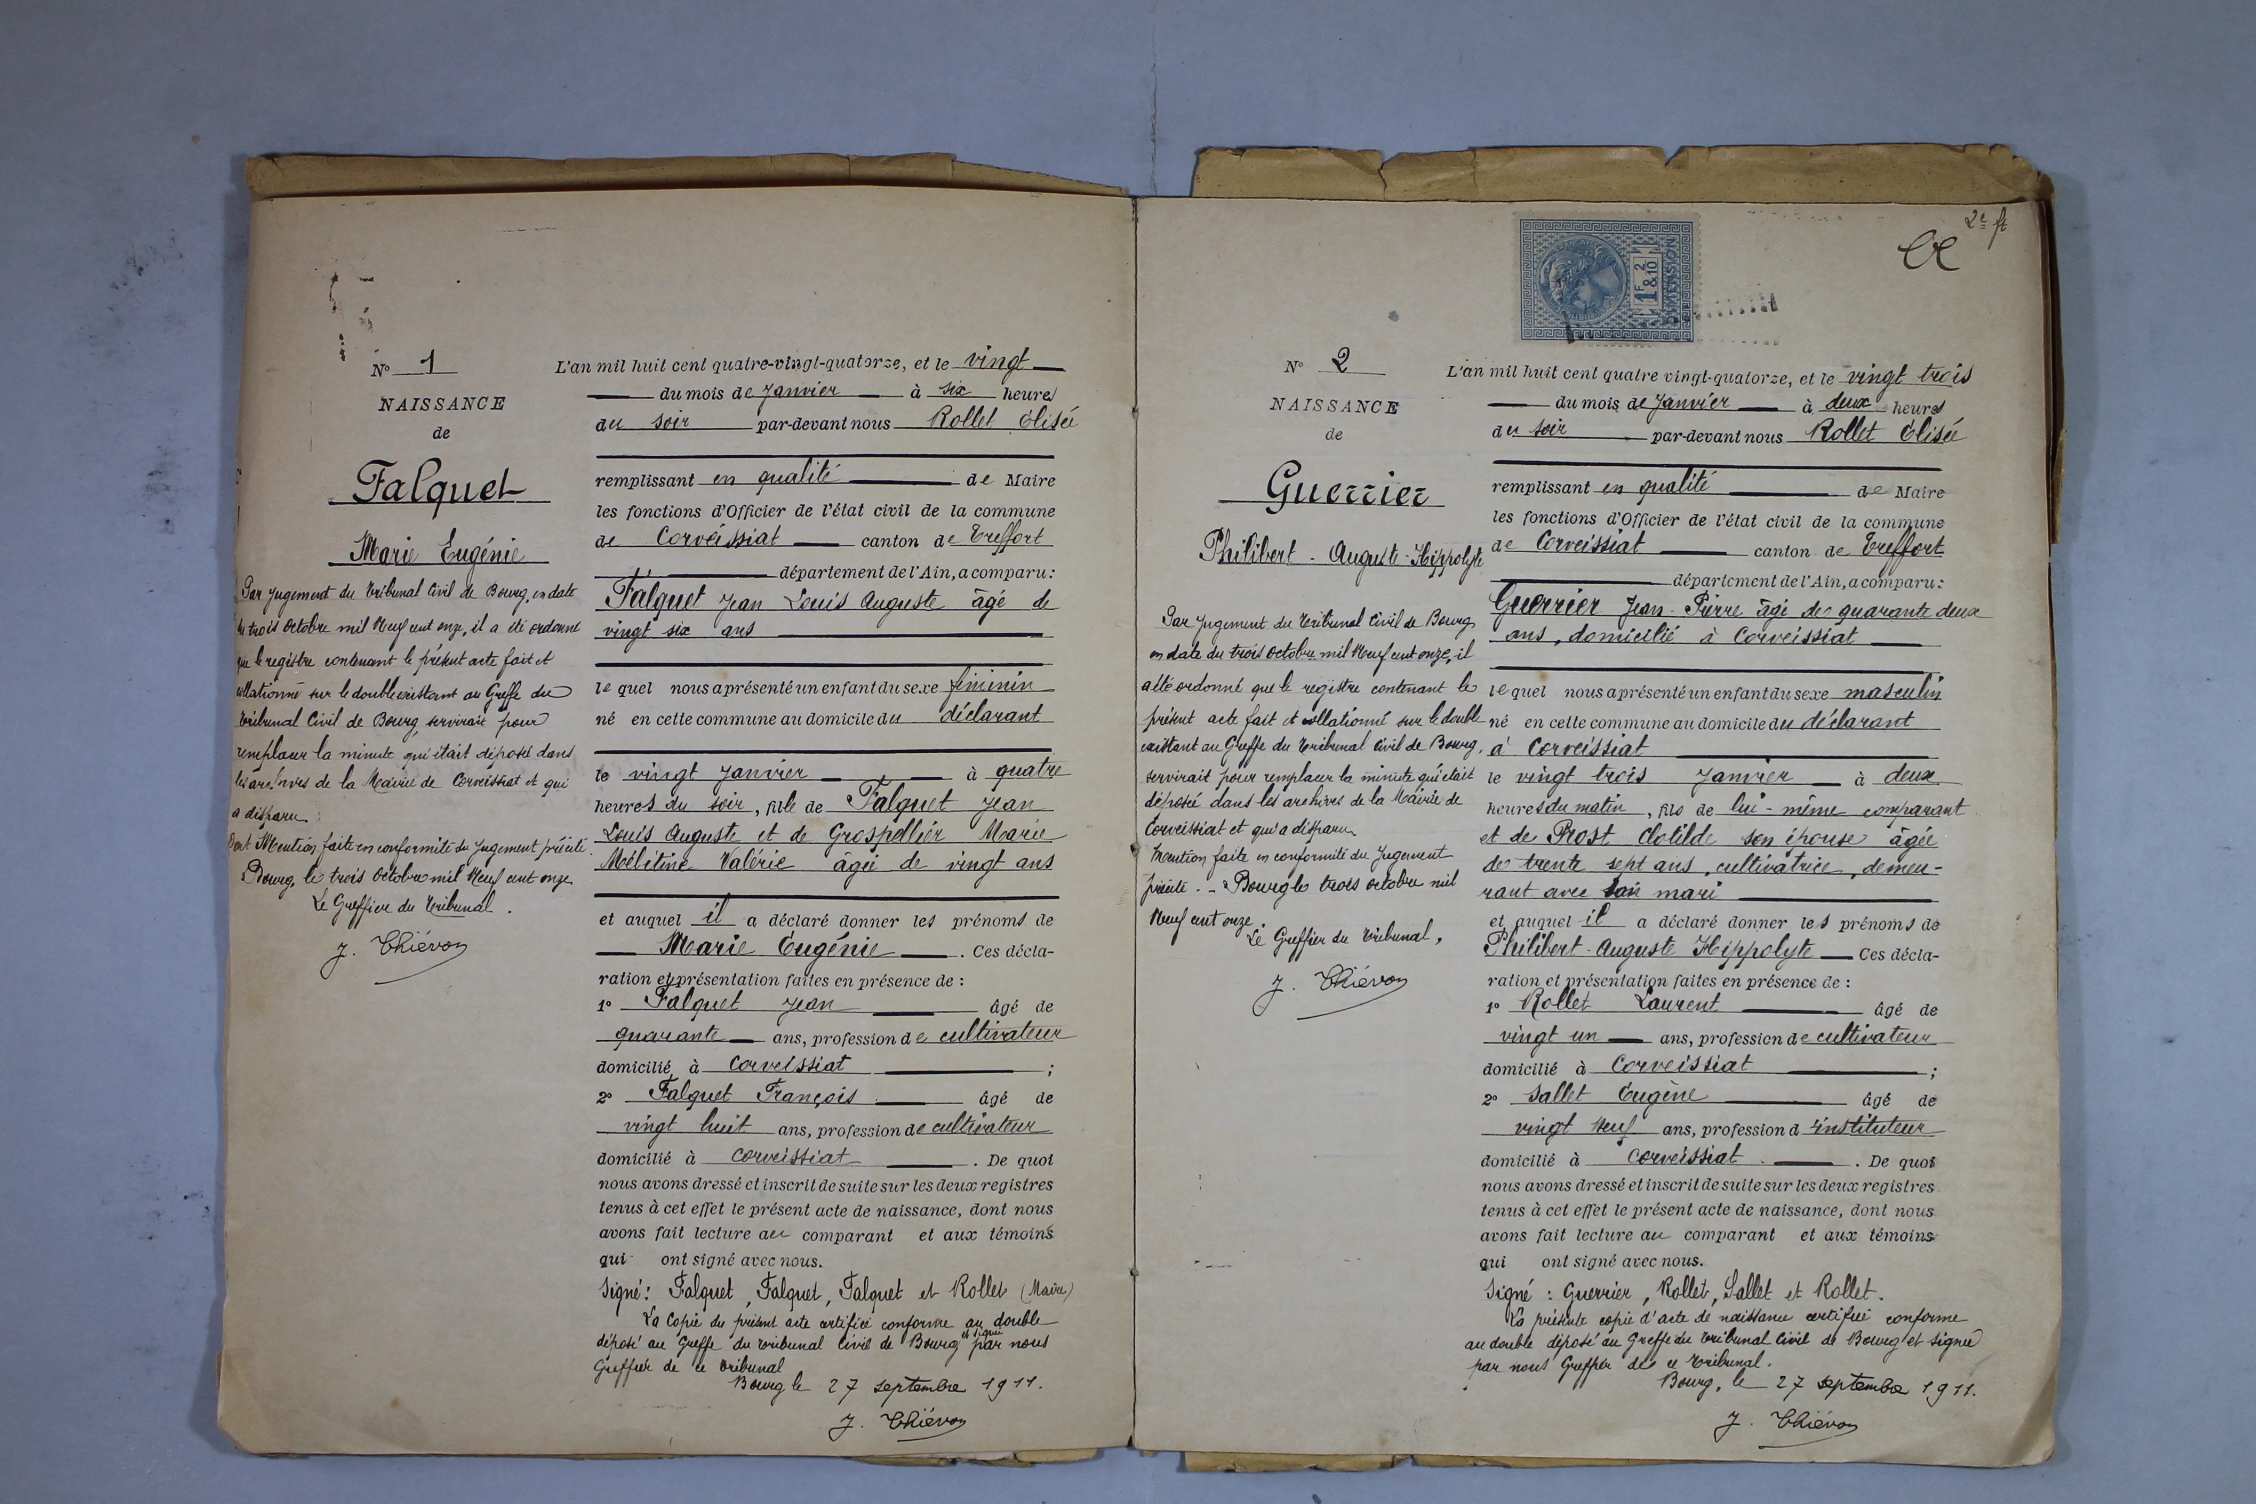 N° 1
NAISSANCE
de
Falquet
Marie Eugénie
Par jugement du Tribunal Civil de Bourg, en date
du trois octobre mil neuf cent onze, il a été ordonné
que le registre contenant le présent acte fait et
collationné sur le double existant au Greffe du
Tribunal Civil de Bourg, servirait pour
remplacer la minute qui était déposée dans
les archives de la Mairie de Corveissiat et qui
a disparu.
Dont Mention faite en conformité du jugement précité
Bourg, le trois octobre mil neuf cent onze
Le Greffier du Tribunal.
J. Thiévon
L'an mil huit cent quatre-vingt-quatorze, et le vingt
du mois de Janvier à six heures
du soir par-devant nous Rollet Élisée
remplissant en qualité de Maire
les fonctions d'Officier de l'état civil de la commune
de Corveissiat canton de Treffort
département de l'Ain, a comparu:
Falquet Jean Louis Auguste âgé de
vingt six ans
lequel nous a présenté un enfant du sexe féminin
né en cette commune au domicile du déclarant
le vingt Janvier à quatre
heures du soir, fille de Falquet Jean
Louis Auguste et de Grospellier Marie
Mélitine Valérie âgée de vingt ans
et auquel il a déclaré donner les prénoms de
Marie Eugénie. Ces décla-
ration et présentation faites en présence de :
1° Falquet Jean âgé de
quarante ans, profession de cultivateur
domicilié à Corveissiat ;
2° Falquet François âgé de
vingt huit ans, profession de cultivateur
domicilié à Corveissiat. De quoi
nous avons dressé et inscrit de suite sur les deux registres
tenus à cet effet le présent acte de naissance, dont nous
avons fait lecture au comparant et aux témoins
qui ont signé avec nous.
Signé : Falquet, Falquet, Falquet et Rollet (Maire)
La Copie du présent acte certifiée conforme au double
déposé au Greffe du Tribunal Civil de Bourg et signée par nous
Greffier de ce Tribunal
Bourg le 27 septembre 1911.
J. Thiévon
2e ft
1F 2/10
& DIMENSION
N° 2
NAISSANCE
de
Guerrier
Philibert - Auguste - Hippolyte
Par jugement du Tribunal Civil de Bourg
en date du trois octobre mil neuf cent onze, il
a été ordonné que le registre contenant le
présent acte fait et collationné sur le double
existant au Greffe du Tribunal Civil de Bourg,
servirait pour remplacer la minute qui était
déposée dans les archives de la Mairie de
Corveissiat et qui a disparu.
Mention faite en conformité du Jugement
précité. - Bourg le trois octobre mil
neuf cent onze.
Le Greffier du Tribunal,
J. Thiévon
L'an mil huit cent quatre vingt-quatorze, et le vingt trois
du mois de Janvier à deux heures
du soir par-devant nous Rollet Élisée
remplissant en qualité de Maire
les fonctions d'Officier de l'état civil de la commune
de Corveissiat canton de Treffort
département de l'Ain, a comparu:
Guerrier Jean-Pierre âgé de quarante deux
ans, domicilié à Corveissiat
lequel nous a présenté un enfant du sexe masculin
né en cette commune au domicile du déclarant
à Corveissiat
le vingt trois Janvier à deux
heures du matin, fils de lui-même comparant
et de Prost Clotilde son épouse âgée
de trente sept ans, cultivatrice, demeu-
rant avec son mari
et auquel il a déclaré donner les prénoms de
Philibert-Auguste Hippolyte Ces décla-
ration et présentation faites en présence de :
1° Rollet Laurent âgé de
vingt un ans, profession de cultivateur
domicilié à Corveissiat ;
2° Sallet Eugène âgé de
vingt neuf ans, profession d'instituteur
domicilié à Corveissiat. De quoi
nous avons dressé et inscrit de suite sur les deux registres
tenus à cet effet le présent acte de naissance, dont nous
avons fait lecture au comparant et aux témoins
qui ont signé avec nous.
Signé : Guerrier, Rollet, Sallet et Rollet.
La présente copie d'acte de naissance certifiée conforme
au double déposé au Greffe du Tribunal Civil de Bourg et signée
par nous Greffier de ce Tribunal.
Bourg, le 27 septembre 1911.
J. Thiévon